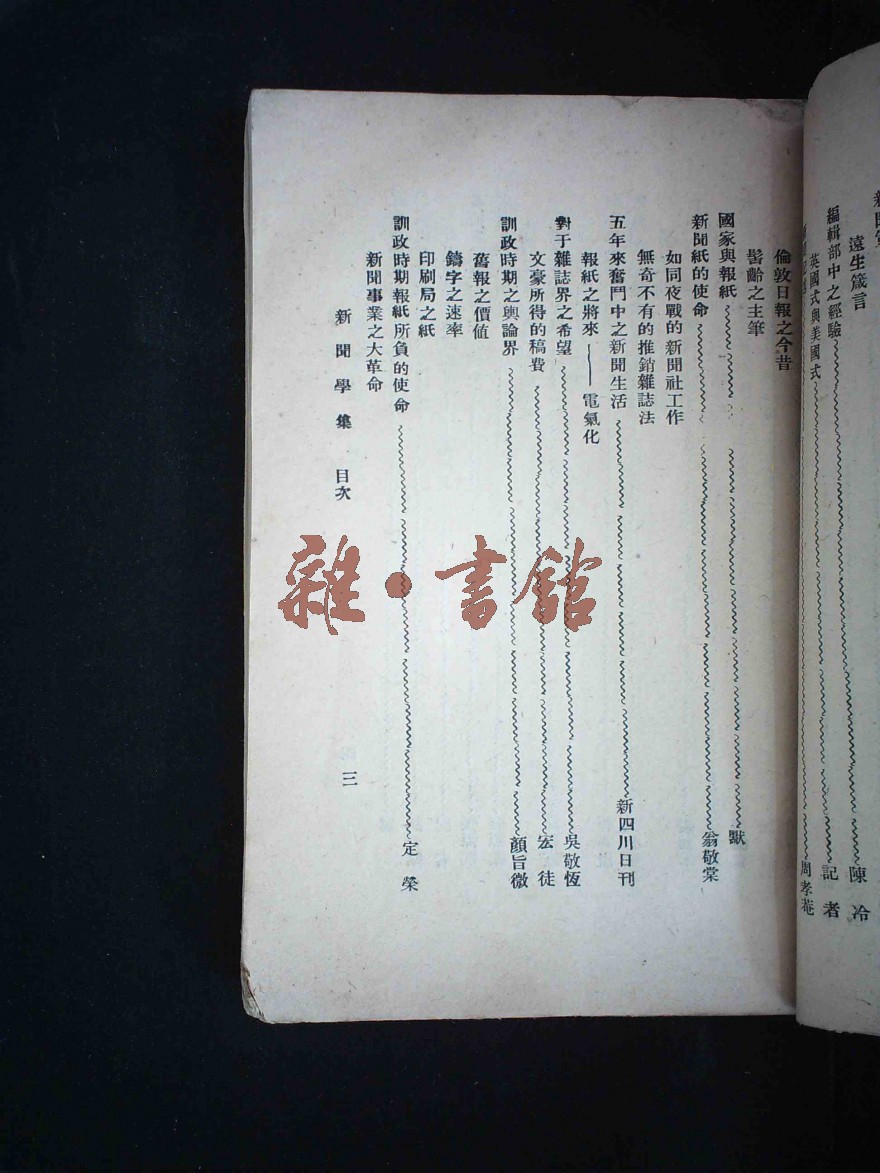 遠生箴言 陳冷
編輯部中之經驗 記者
英國式與美國式
周孝菴
倫敦日報之今昔
髫齡之主筆
國家與報紙 默
新聞紙的使命 翁敬棠
如同夜戰的新聞社工作
無奇不有的推銷雜誌法
五年來奮鬥中之新聞生活 新四川日刊
報紙之將來——電氣化
對于雜誌界之希望 吳敬恆
文豪所得的稿費 宏徒
訓政時期之輿論界 顏旨微
舊報之價値
鑄字之速率
印刷局之紙
訓政時期報紙所負的使命 定榮
新聞事業之大革命
新聞學集 目次 三
雜·書館